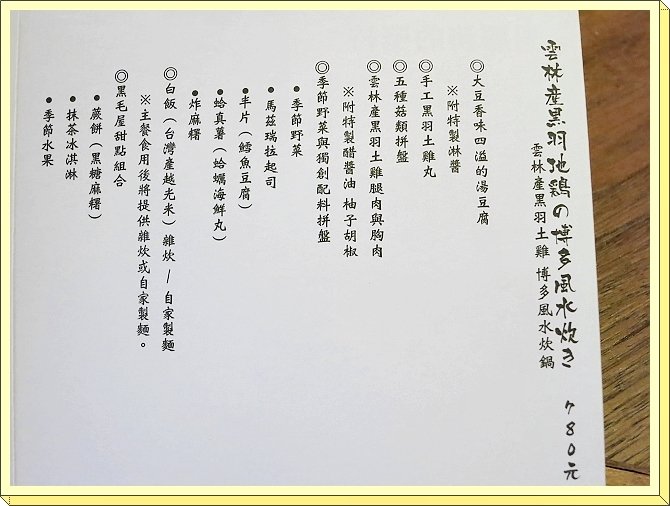 雲林産黒羽地鶏の博多風水炊き 780元
雲林産黒羽土雞 博多風水炊鍋
◎大豆香味四溢的湯豆腐
※附特製淋醬
◎手工黑羽土雞丸
◎五種菇類拼盤
◎雲林產黑羽土雞腿肉與胸肉
※附特製醋醬油 柚子胡椒
◎季節野菜與獨創配料拼盤
●季節野菜
●馬茲瑞拉起司
●半片(鱈魚豆腐)
●蛤真薯(蛤蠣海鮮丸)
●炸麻糬
◎白飯(台灣產越光米) 雜炊/自家製麵
※主餐食用後將提供雜炊或自家製麵。
◎黑毛屋甜點組合
●蕨餅(黑糖麻糬)
●抹茶冰淇淋
●季節水果